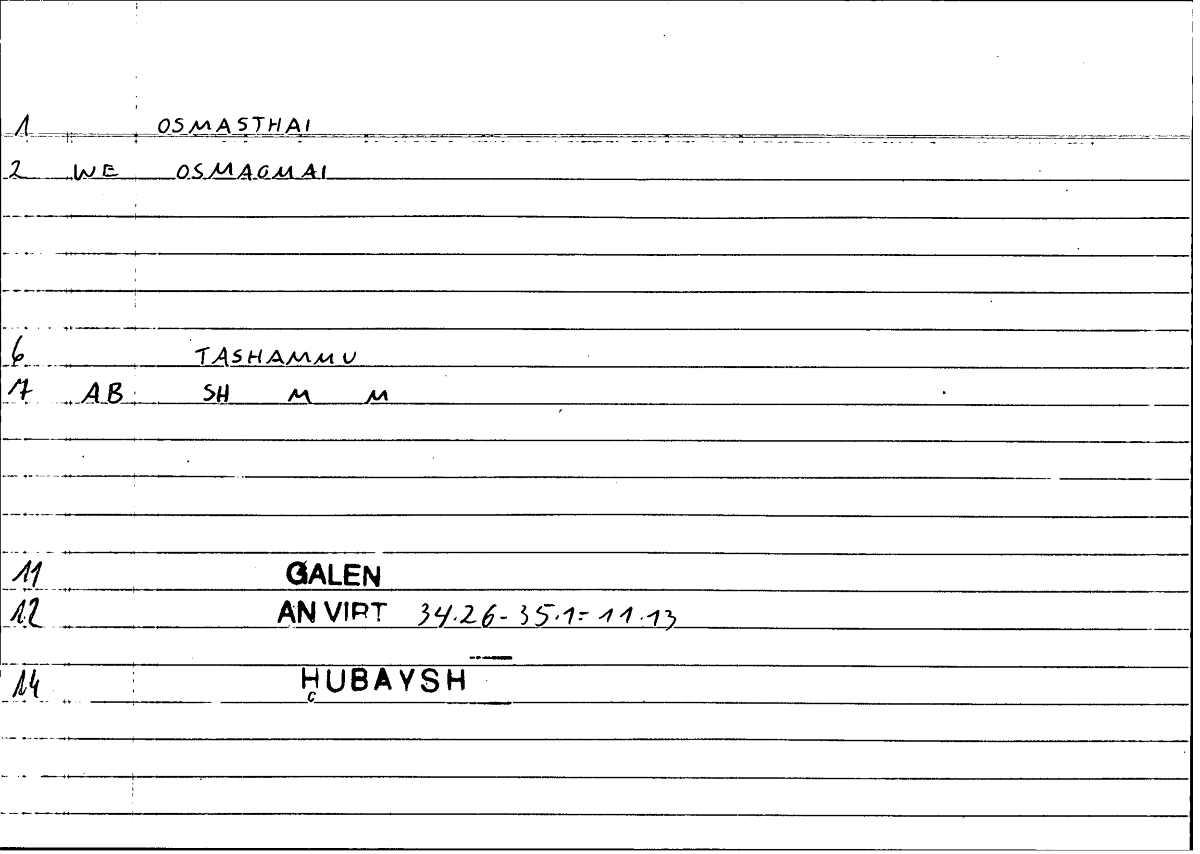 1 OSMASTHAI
2 WE OSMAOMAI
6 TASHAMMU
7 AB SH M M
11 GALEN
12 AN VIRT 34.26-35.1=11.13
14 HUBAYSH